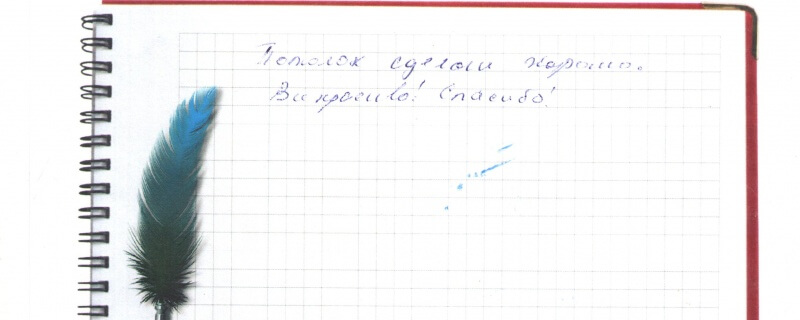 Потолок сделали хорошо.
красиво! Спасибо!